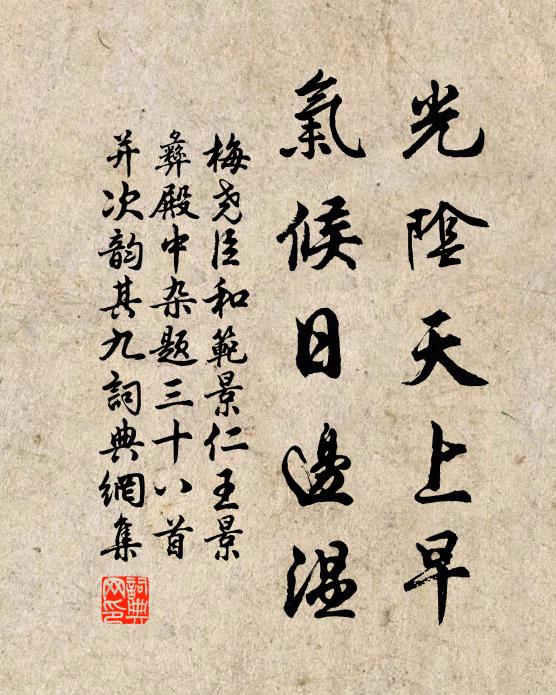 光陰天上早
氣候日邊温
梅尧臣和範景仁王景
彝殿中杂题三十八首
并次韵其九詞典網集
詞典
网印